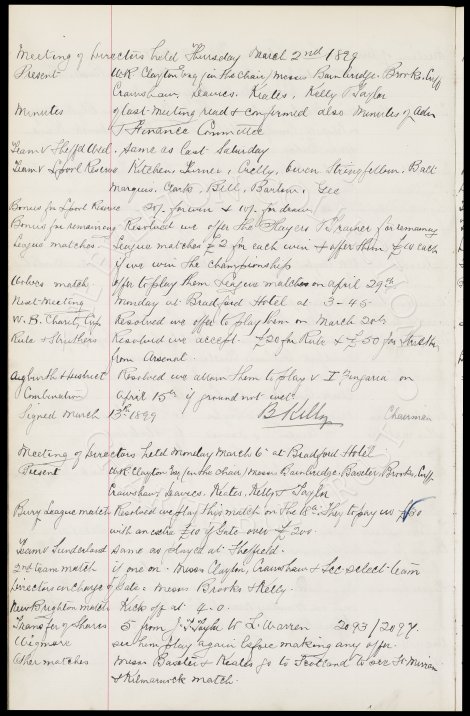 Meeting of Directors held Thursday March 2nd 1899
Present W.R. Clayton Esq (in the chair) Messrs Bainbridge. Brooks. Cuff
Crawshaw, Leavies. Keates, Kelly & Taylor
Minutes of last meeting read & confirmed also Minutes of
& Finance Committee
Team v Sheffd Utd. Same as last Saturday
Team v L'pool Reserve Kitchen. Turner, Crelly, Owen Stringfellow, Balt
Marquis, Clark, Bell, Barlow, Gee
Bonus for L'pool Reserve 20/- for win & 10/- for draw
Bonus for remaining Resolved we offer the Players & Trainer for remaining
League matches League matches £2 for each win & offer them £10 each
if we win the championship
Wolves match offer to play them League match on April 29th
Next Meeting Monday at Bradford Hotel at 3-45
W.B. Charity Cup Resolved we offer to play them on March 20th
Rule & Struthers Resolved we accept £20 for Rule & £50 for Struthers
from Arsenal.
Aigburth & District Resolved we allow them to play v X Fingaria on
Combination April 15th if ground not wet
Signed March 13th 1899 B Kelly Chairman
Meeting of Directors held Monday March 6th at Bradford Hotel
Present W.R. Clayton Esq (in the chair) Messrs Bainbridge. Baxter, Brooks, Cuff.
Crawshaw, Leavies. Keates, Kelly & Taylor
Bury League match Resolved we play this match on the They to pay us £50
with an extra £10 if Gate over £200.
Team v Sunderland Same as played at Sheffield.
2nd team match if one on. Messrs Clayton, Crawshaw & Sec select team
Directors in charge of Gate: Messrs Brooks & Kelly.
New Brighton match Kick off at 4.0.
Transfer of Shares 5 from J. Taylor to L. Warren 2093/2097.
Wigmore see him play again before making any offer.
Other matches Messrs Baxter & Keates go to Scotland to see St Mirren
& Kilmarnock match.